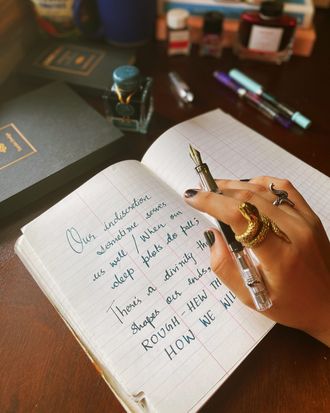 Our indiscretion
Sometime serves
us well / When our
deep plots do pall
There's a divinity th
shapes our ends
ROUGH-HEW TH
HOW WE WIL